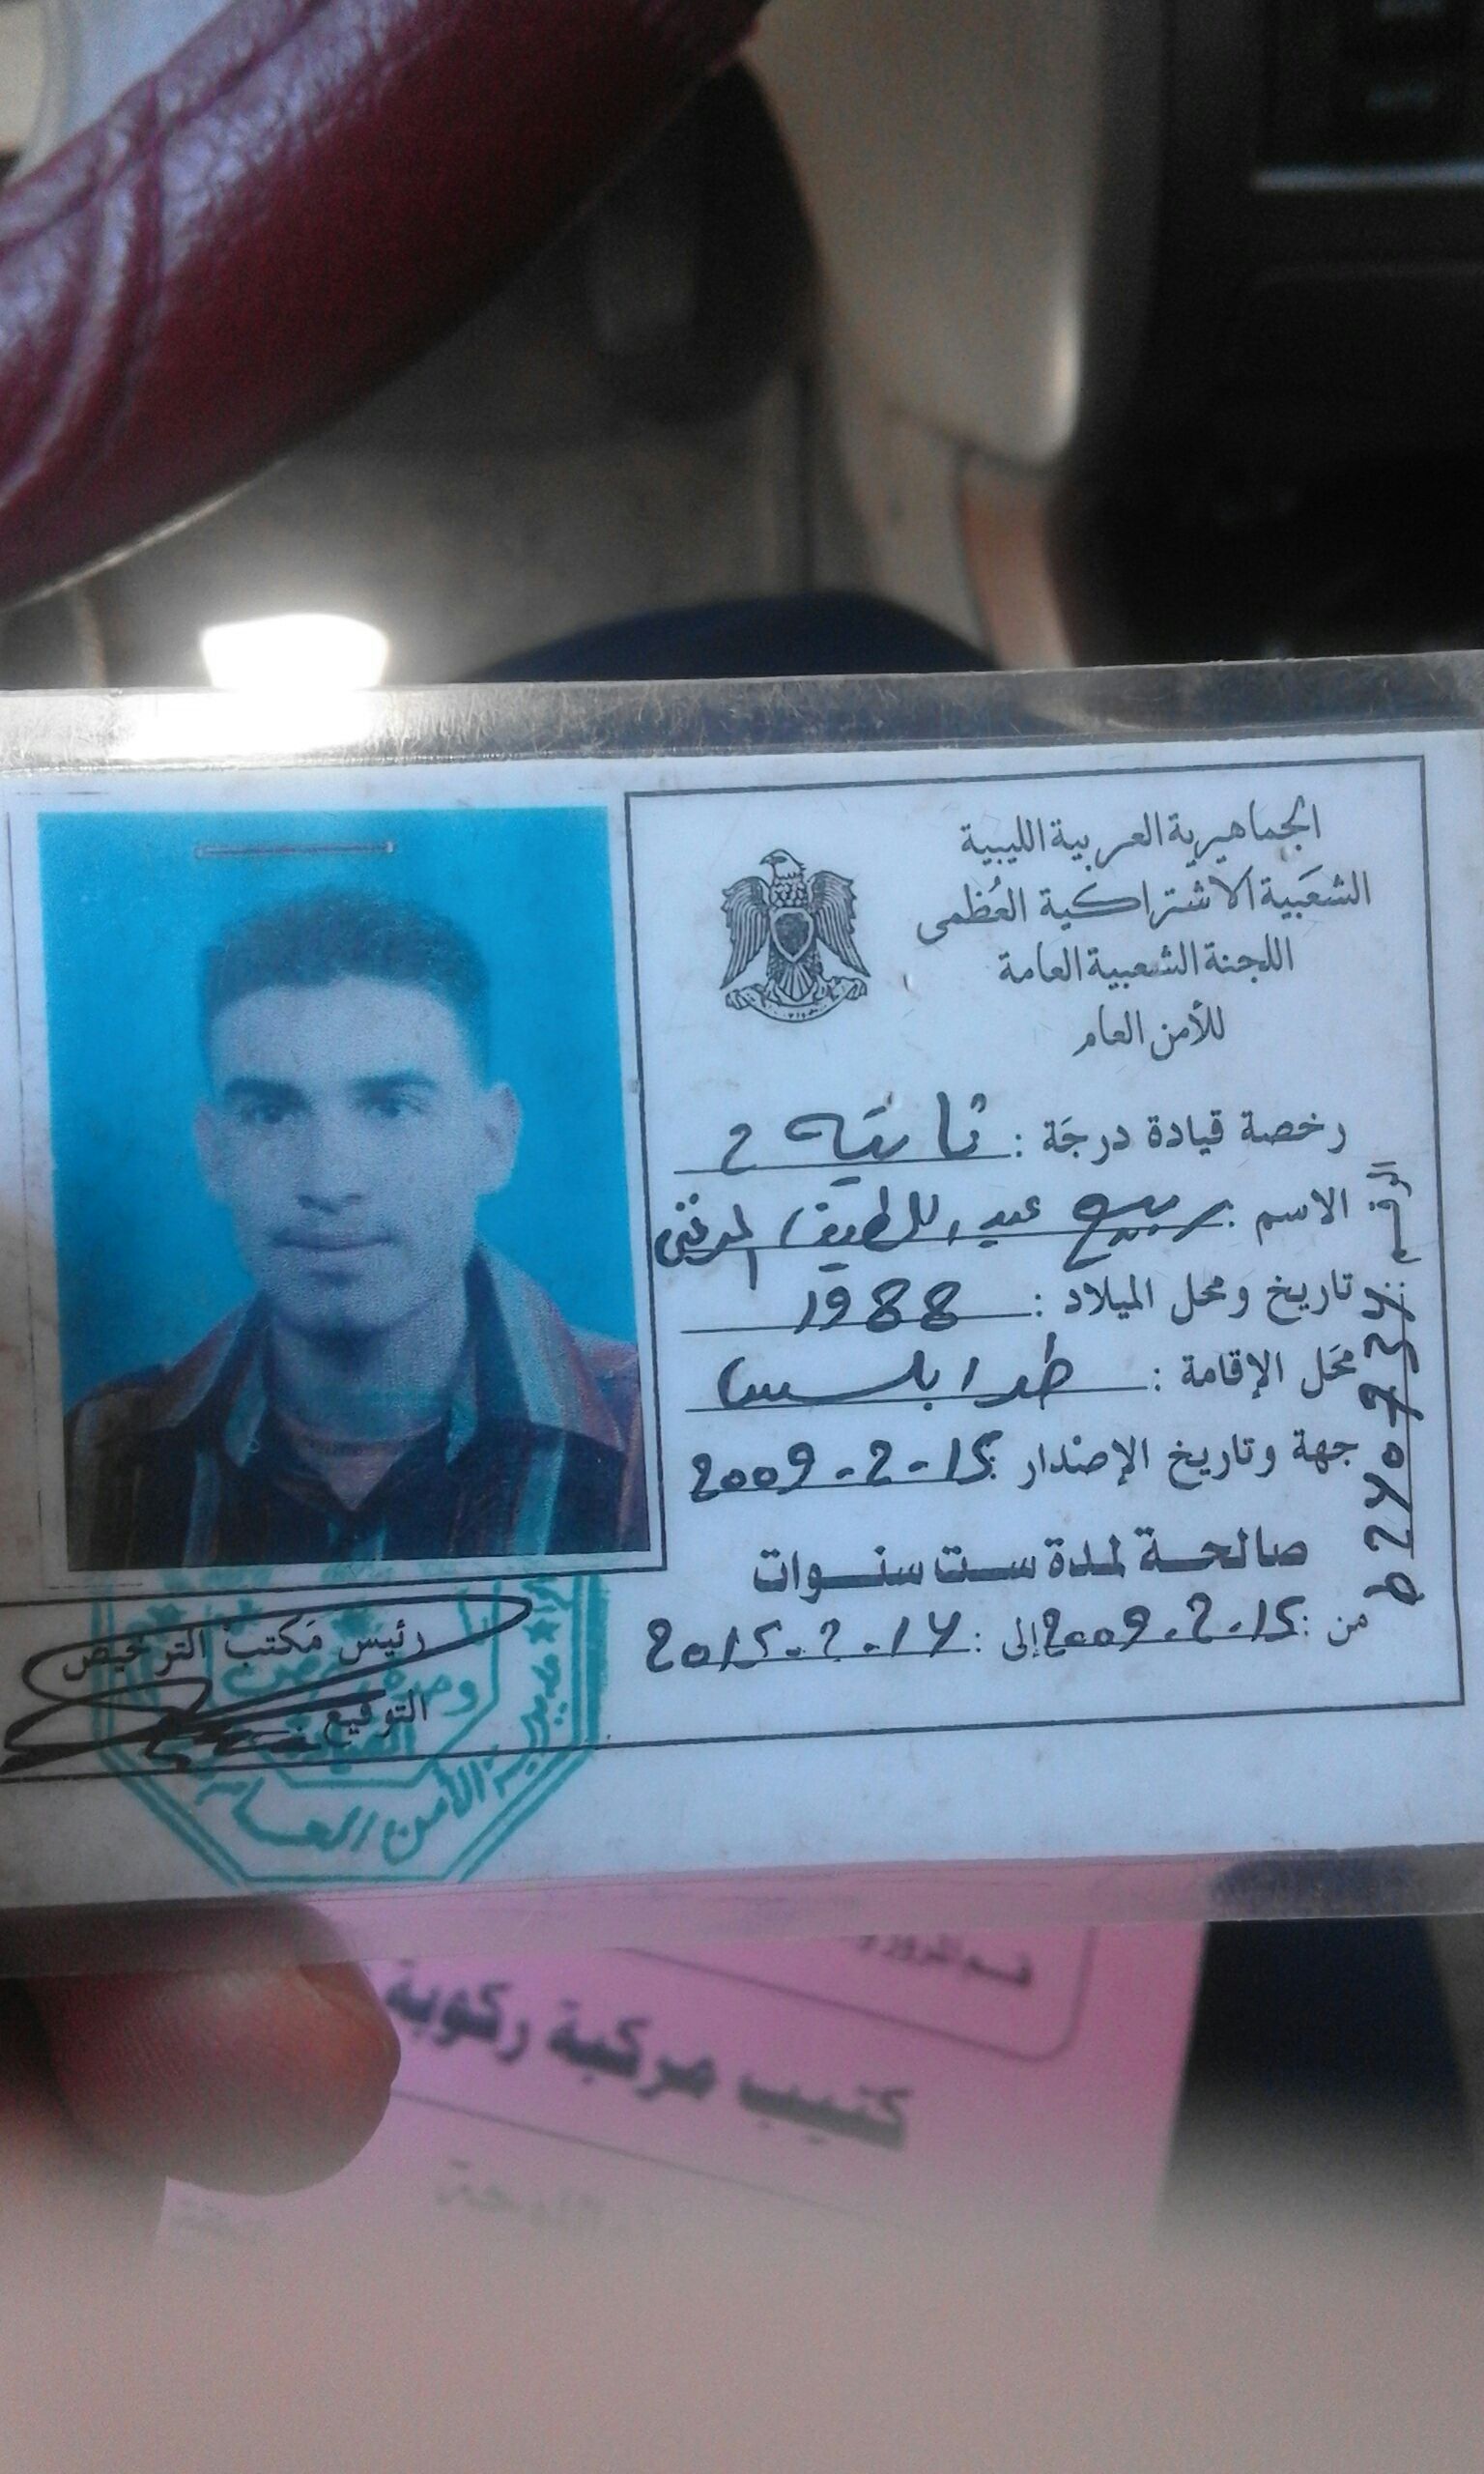 الجماهيرية العربية الليبية
الشعبية الاشتراكية العظمى
اللجنة الشعبية العامة
للأمن العام
رخصة قيادة درجة : ثانية 2
الاسم : ربيع عبد اللطيف
تاريخ ومحل الميلاد : 1988
محل الإقامة : طرابلس
جهة وتاريخ الإصدار : 2009-2-15
صالحة لمدة ست سنوات
من : 2009-2-15 إلى : 2015-2-14
الرقم :
رئيس مكتب الترخيص
التوقيع
الأمن العام
كتيب مركبة ركوبة